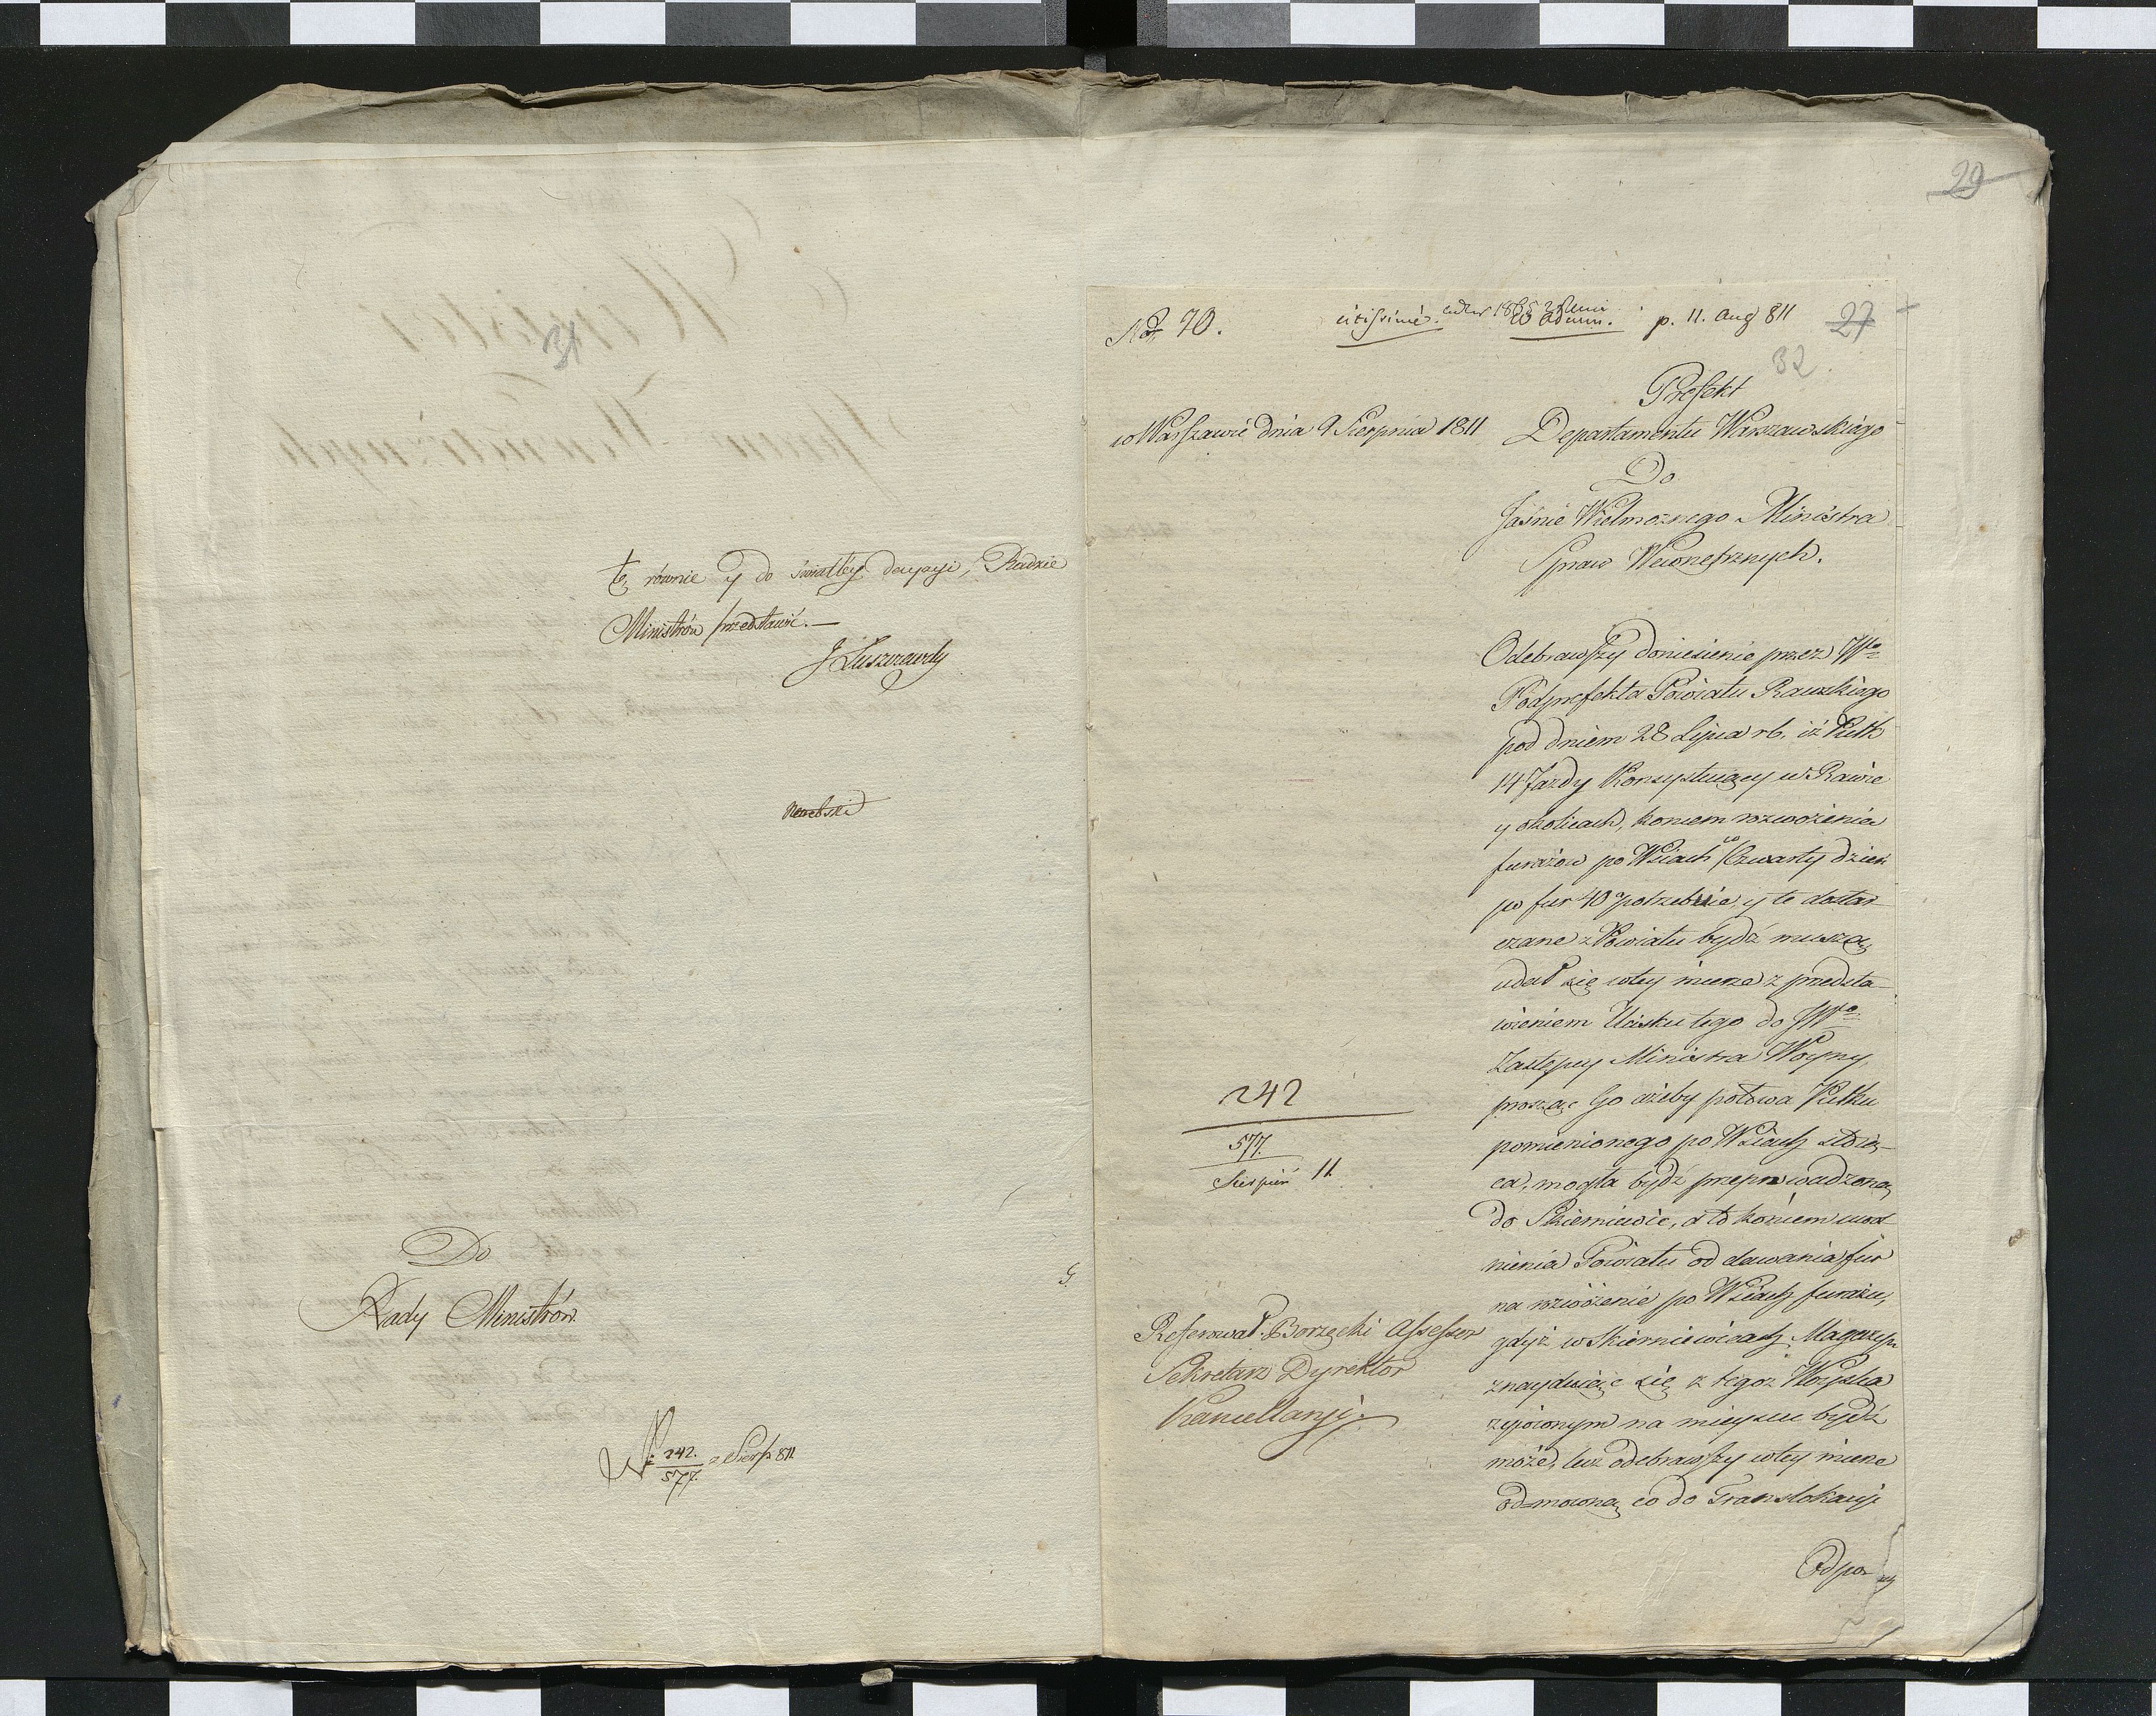 31
tę równie y do światłey decyzyi, Radzie
Ministrów przedstawić. —
J Łuszczewsky
Do
Rady Ministrów.
N: 242. / 577. z Sierp 811.
29
No 70.
citissime
p. 11. Aug 811
27
32.
Prefekt
w Warszawie dnia 9 Sierpnia 1811
Departamentu Warszawskiego
Do
Jaśnie Wielmożnego Ministra
Spraw Wewnętrznych.
Odebrawszy doniesienie przez
Podprefekta Powiatu Rawskiego
pod dniem 28 Lipca rb. iż Pułk
14 Jazdy Konsystuiący w Rawie
y okolicach, końcem rozwożenia
furażow po Wsiach co Czwarty dzień
po fur 40 potrzebuie, y te dostar-
czane z Powiatu bydź muszą,
udał się w tey mierze z przedsta-
wieniem Ucisku tego do JW°
Zastępcy Ministra Woyny,
prosząc Go ażeby połowa Pułku
pomienionego po Wsiach stoią-
ca, mogła bydź przeprowadzoną
do Skierniewic, a to końcem uwol
nienia Powiatu od dawania fur
na rozwożenie po Wsiach furażu,
gdyż w Skierniewicach Magazyn
znayduiąc się z tegoż Woysko
żywionym na mieyscu bydź
może, lecz odebrawszy w tey mierze
odmowną co do Translokacyi
Odpo
242
577.
Sierpień 11.
Referował: Borzęcki Assessor
Sekretarz Dyrektor
Kancellaryi.